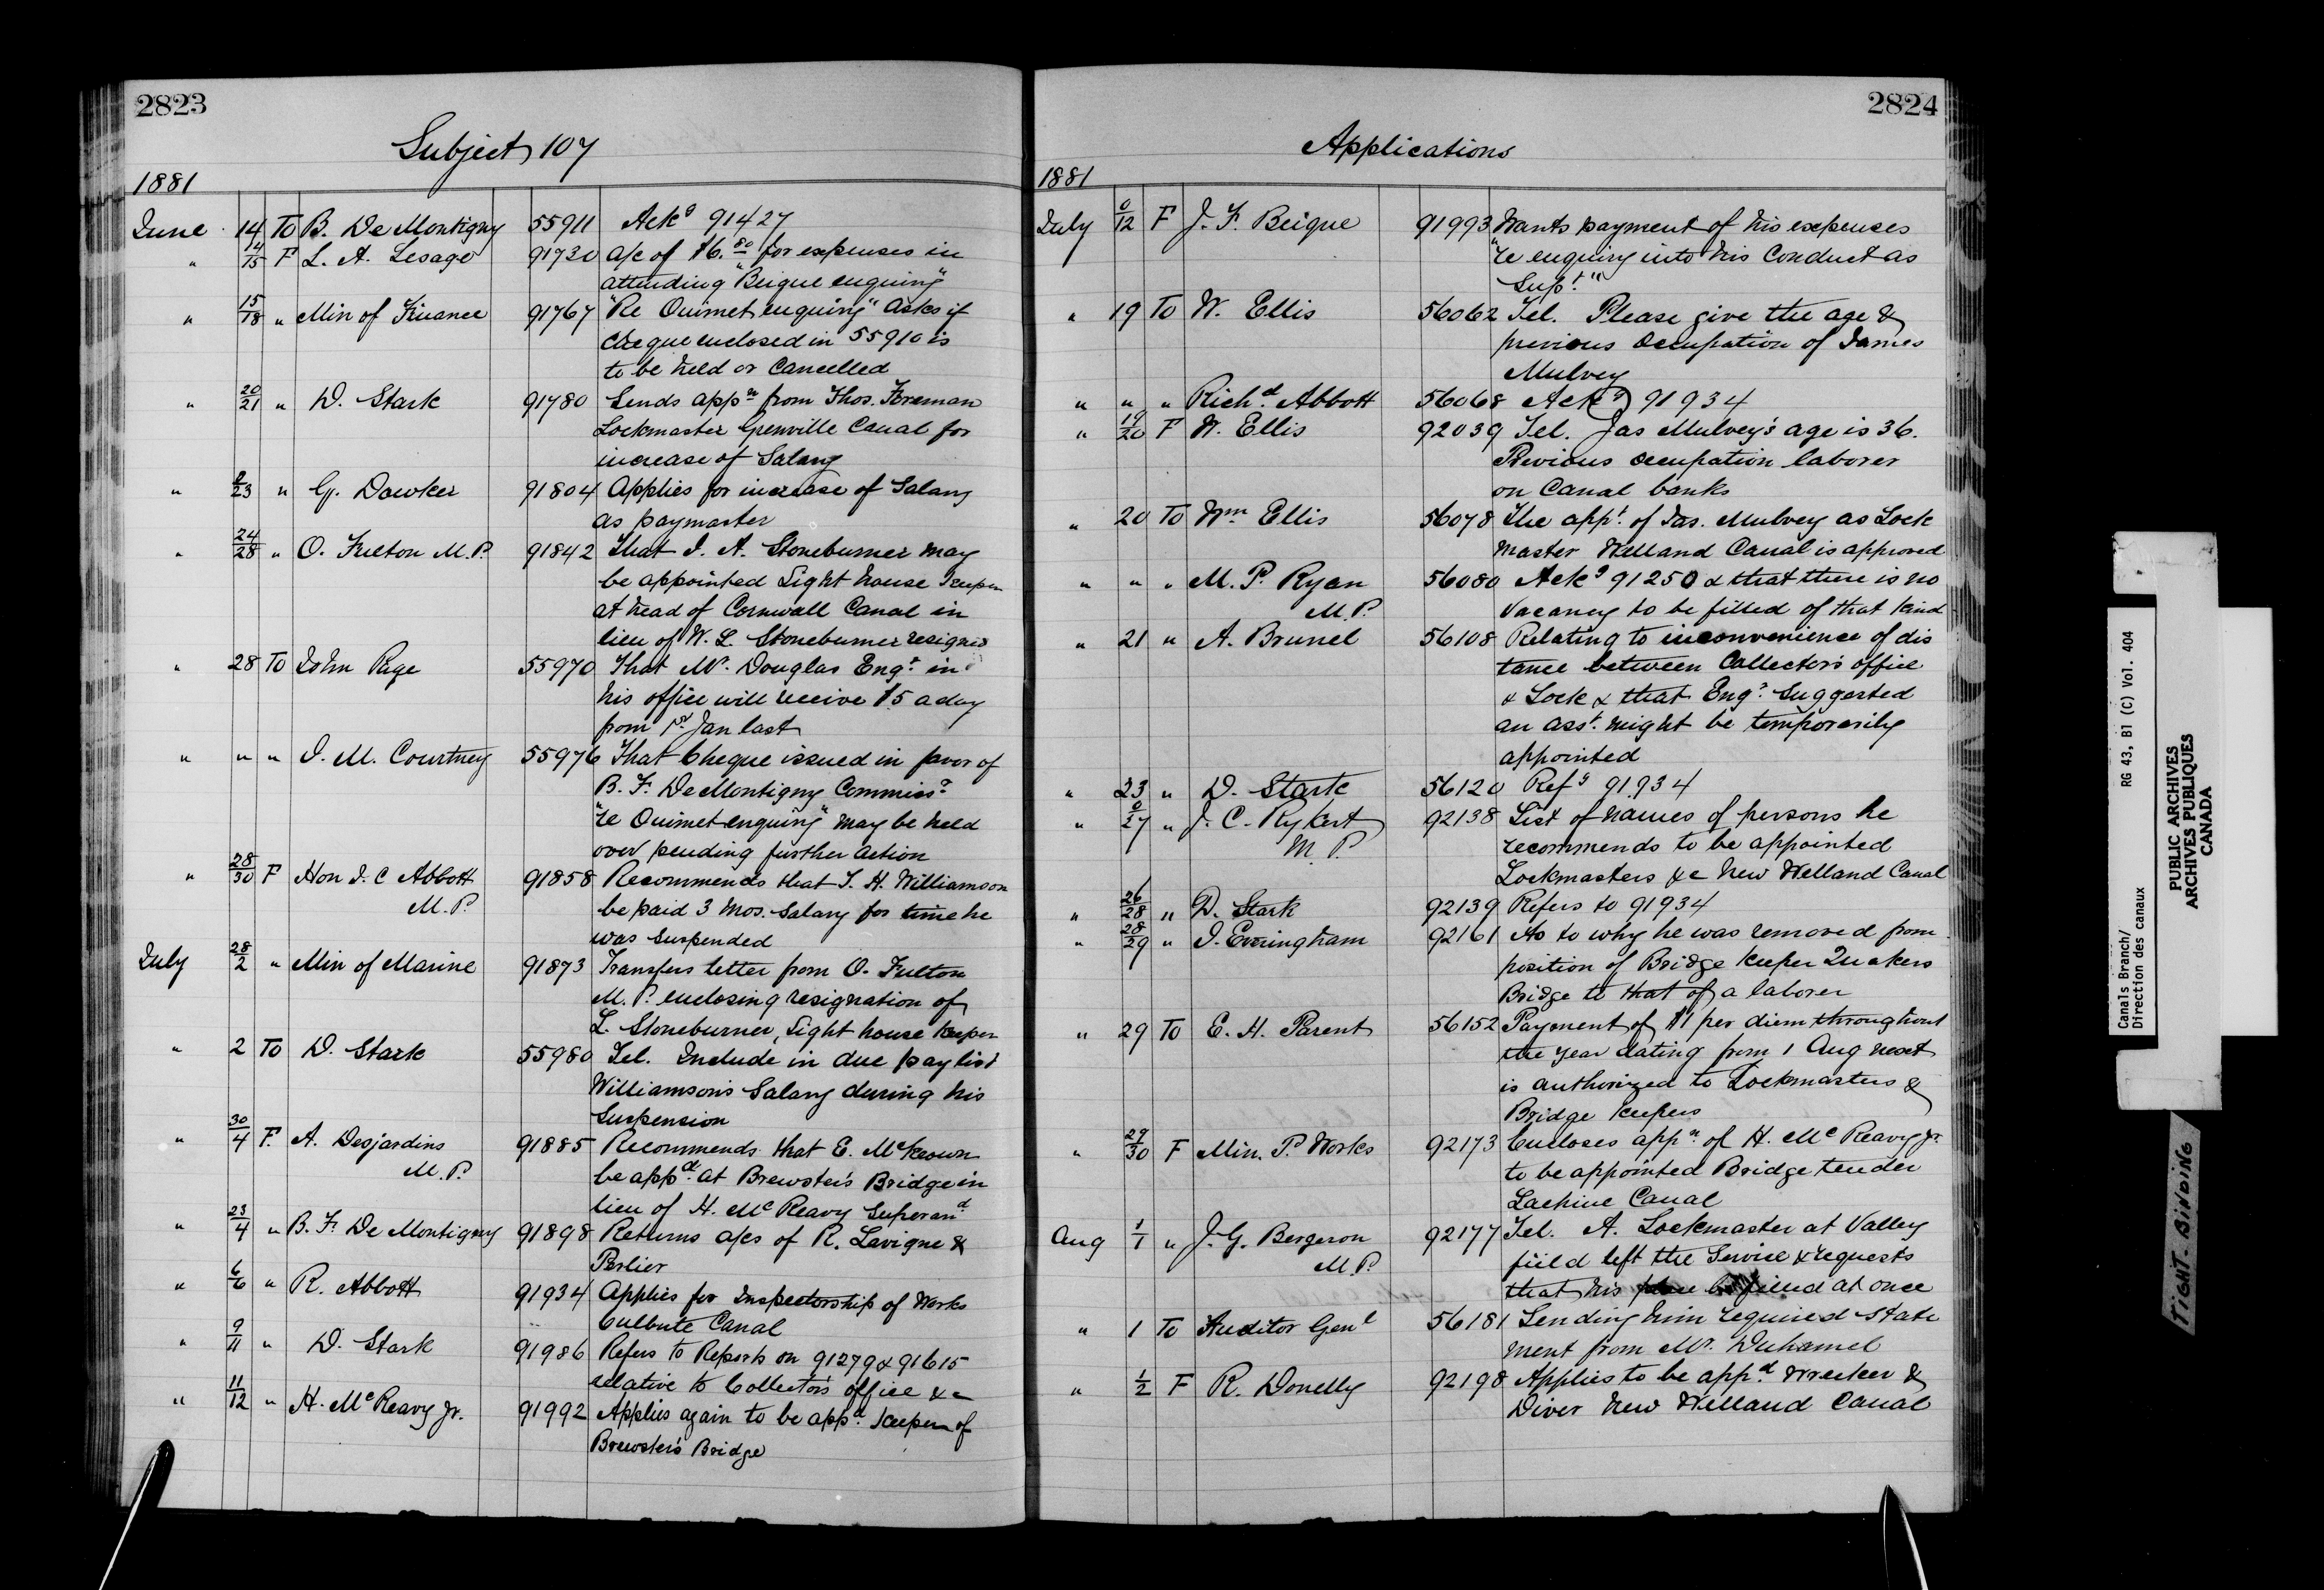 2823
Subject 107
1881
June 14 To B. De Montigny 55911 Ackg 91427
" 14/15 F L. A. Lesage 91730 a/c of $6.80 for expenses in
attending "Beique enquiry"
" 15/18 " Min of Finance 91767 "Re Ouimet enquiry" asks if
cheque enclosed in 55910 is
to be held or Cancelled
" 20/21 " D. Stark 91780 Sends appn from Thos. Foreman
Lockmaster Grenville Canal for
increase of Salary
" 0/23 " G. Dawker 91804 Applies for increase of Salary
as paymaster
" 24/28 " O. Fulton M.P. 91842 That I. A. Stoneburner may
be appointed Light house Keeper
at head of Cornwall Canal in
lieu of W. L. Stoneburner resigned
" 28 To John Page 55970 That Mr. Douglas Engr. in
his office will receive $5 a day
from 1st Jan last
" " " J. M. Courtney 55976 That Cheque issued in favor of
B. F. De Montigny Commissr
"re Ouimet enquiry" may be held
over pending further action
" 28/30 F Hon J. C Abbott 91858 Recommends that T. H. Williamson
M.P. be paid 3 mos. salary for time he
was suspended
July 28/2 " Min of Marine 91873 Transfers letter from O. Fulton
M.P. enclosing resignation of
L. Stoneburner, Light house Keeper
" 2 To D. Stark 55980 Tel. Include in due pay list
Williamson's Salary during his
Suspension
" 30/4 F. A. Desjardins 91885 Recommends that E. McKeown
M.P. be appd. at Brewster's Bridge in
lieu of H. McReavy Superand
" 23/4 " B. F. De Montigny 91898 Returns a/cs of R. Lavigne &
Perlier
" 6/6 " R. Abbott 91934 Applies for Inspectorship of Works
Culbute Canal
" 9/11 " D. Stark 91986 Refers to Reports on 91279 & 91615
relative to Collector's office &c
" 11/12 " H. McReavy Jr. 91992 Applies again to be appd. Keeper of
Brewster's Bridge
2824
Applications
1881
July 0/12 F J. F. Beique 91993 Wants payment of his expenses
"re enquiry into his Conduct as
Supt."
" 19 To W. Ellis 56062 Tel. Please give the age &
previous Occupation of James
Mulvey
" " " Richd. Abbott 56068 Ackg 91934
" 19/20 F W. Ellis 92039 Tel. Jas Mulvey's age is 36.
Previous occupation laborer
on Canal banks
" 20 To Wm. Ellis 56078 The appt. of Jas. Mulvey as Lock
master Welland Canal is approved
" " " M. P. Ryan 56080 Ackg 91250 & that there is no
M.P. Vacancy to be filled of that kind
" 21 " A. Brunel 56108 Relating to inconvenience of dis
tance between Collector's office
& Lock & that Engr. Suggested
an asst. might be temporarily
appointed
" 23 " D. Stark 56120 Refg 91934
" 0/27 " J. C. Rykert 92138 List of names of persons he
M.P. recommends to be appointed
Lockmasters &c New Welland Canal
" 26/28 " D. Stark 92139 Refers to 91934
" 28/29 " J. Everingham 92161 As to why he was removed from
position of Bridge Keeper Quakers
Bridge to that of a laborer
" 29 To E. H. Parent 56152 Payment of $1 per diem throughout
the year dating from 1 Aug next
is authorized to Lockmasters &
Bridge Keepers
" 29/30 F Min. P. Works 92173 Encloses appn. of H. McReavy Jr.
to be appointed Bridge tender
Lachine Canal
Aug 1/1 " J. G. Bergeron 92177 Tel. A. Lockmaster at Valley
M.P. field left the Service & requests
that his place be filled at once
" 1 To Auditor Genl 56181 Sending him required state
ment from Mr. Duhamel
" 1/2 F R. Donelly 92198 Applies to be appd. Wrecker &
Diver New Welland Canal
Canals Branch/
Direction des canaux
RG 43, B1 (C) Vol. 404
PUBLIC ARCHIVES
ARCHIVES PUBLIQUES
CANADA
TIGHT BINDING